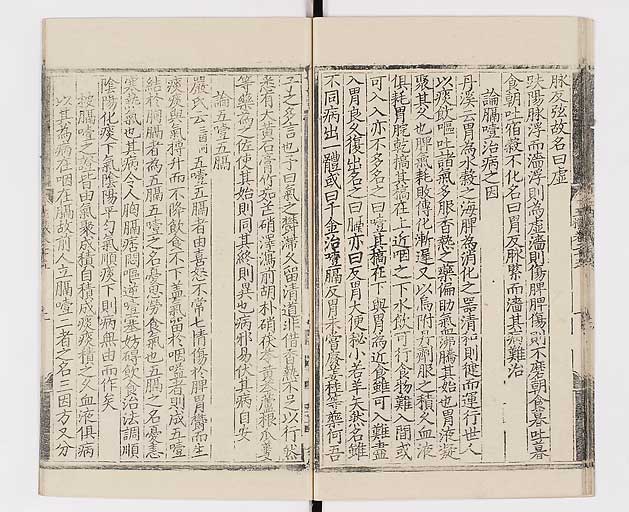 脉反弦故名曰虛
趺陽脉浮而濇浮則為虛濇則傷脾脾傷則不磨朝食暮吐暮
食朝吐宿穀不化名曰胃反脉緊而濇其病難治
論膈噎治病之因
丹溪云胃為水穀之海脾為消化之器清和則健而運行世人
以痰飲嘔吐諸氣多服香熱之藥偏助氣血沸騰其始也胃液凝
聚其久也脾氣耗敗傳化漸遲又以烏附丹劑服之積久血液
俱耗胃脘乾槁其槁在上近咽之下水飲可行食物難入間或
可入入亦不多名之曰噎其槁在下與胃為近食雖可入難盡
入胃良久復出名之曰膈亦曰反胃大便秘小若羊矢然名雖
不同病出一體或曰千金治噎膈反胃不當廢薑桂等藥何吾
子之多言也予曰氣之鬱滯久留清道非借香熱不足以行然
悉有大黃石膏竹茹芒硝澤瀉前胡朴硝茯苓黃芩蘆根瓜蔞
等藥為之佐使其始則同其終則異也病邪易伏其病自安
論五噎五膈
嚴氏云 五噎五膈者由喜怒不常七情傷於脾胃鬱而生
痰痰與氣搏升而不降飲食不下蓋氣留於咽嗌者則成五噎
結於胸膈者為五膈五噎之名憂思勞食氣也五膈之名憂恚
寒熱氣也其病令人胸膈痞悶嘔逆噎塞妨碍飲食治法調順
陰陽化痰下氣陰陽平勻氣順痰下則病無由而作矣
按膈噎之證皆由氣來成積自積成痰痰積之久血液俱病
以其為病在咽在膈故前人立膈噎二者之名三因方又分